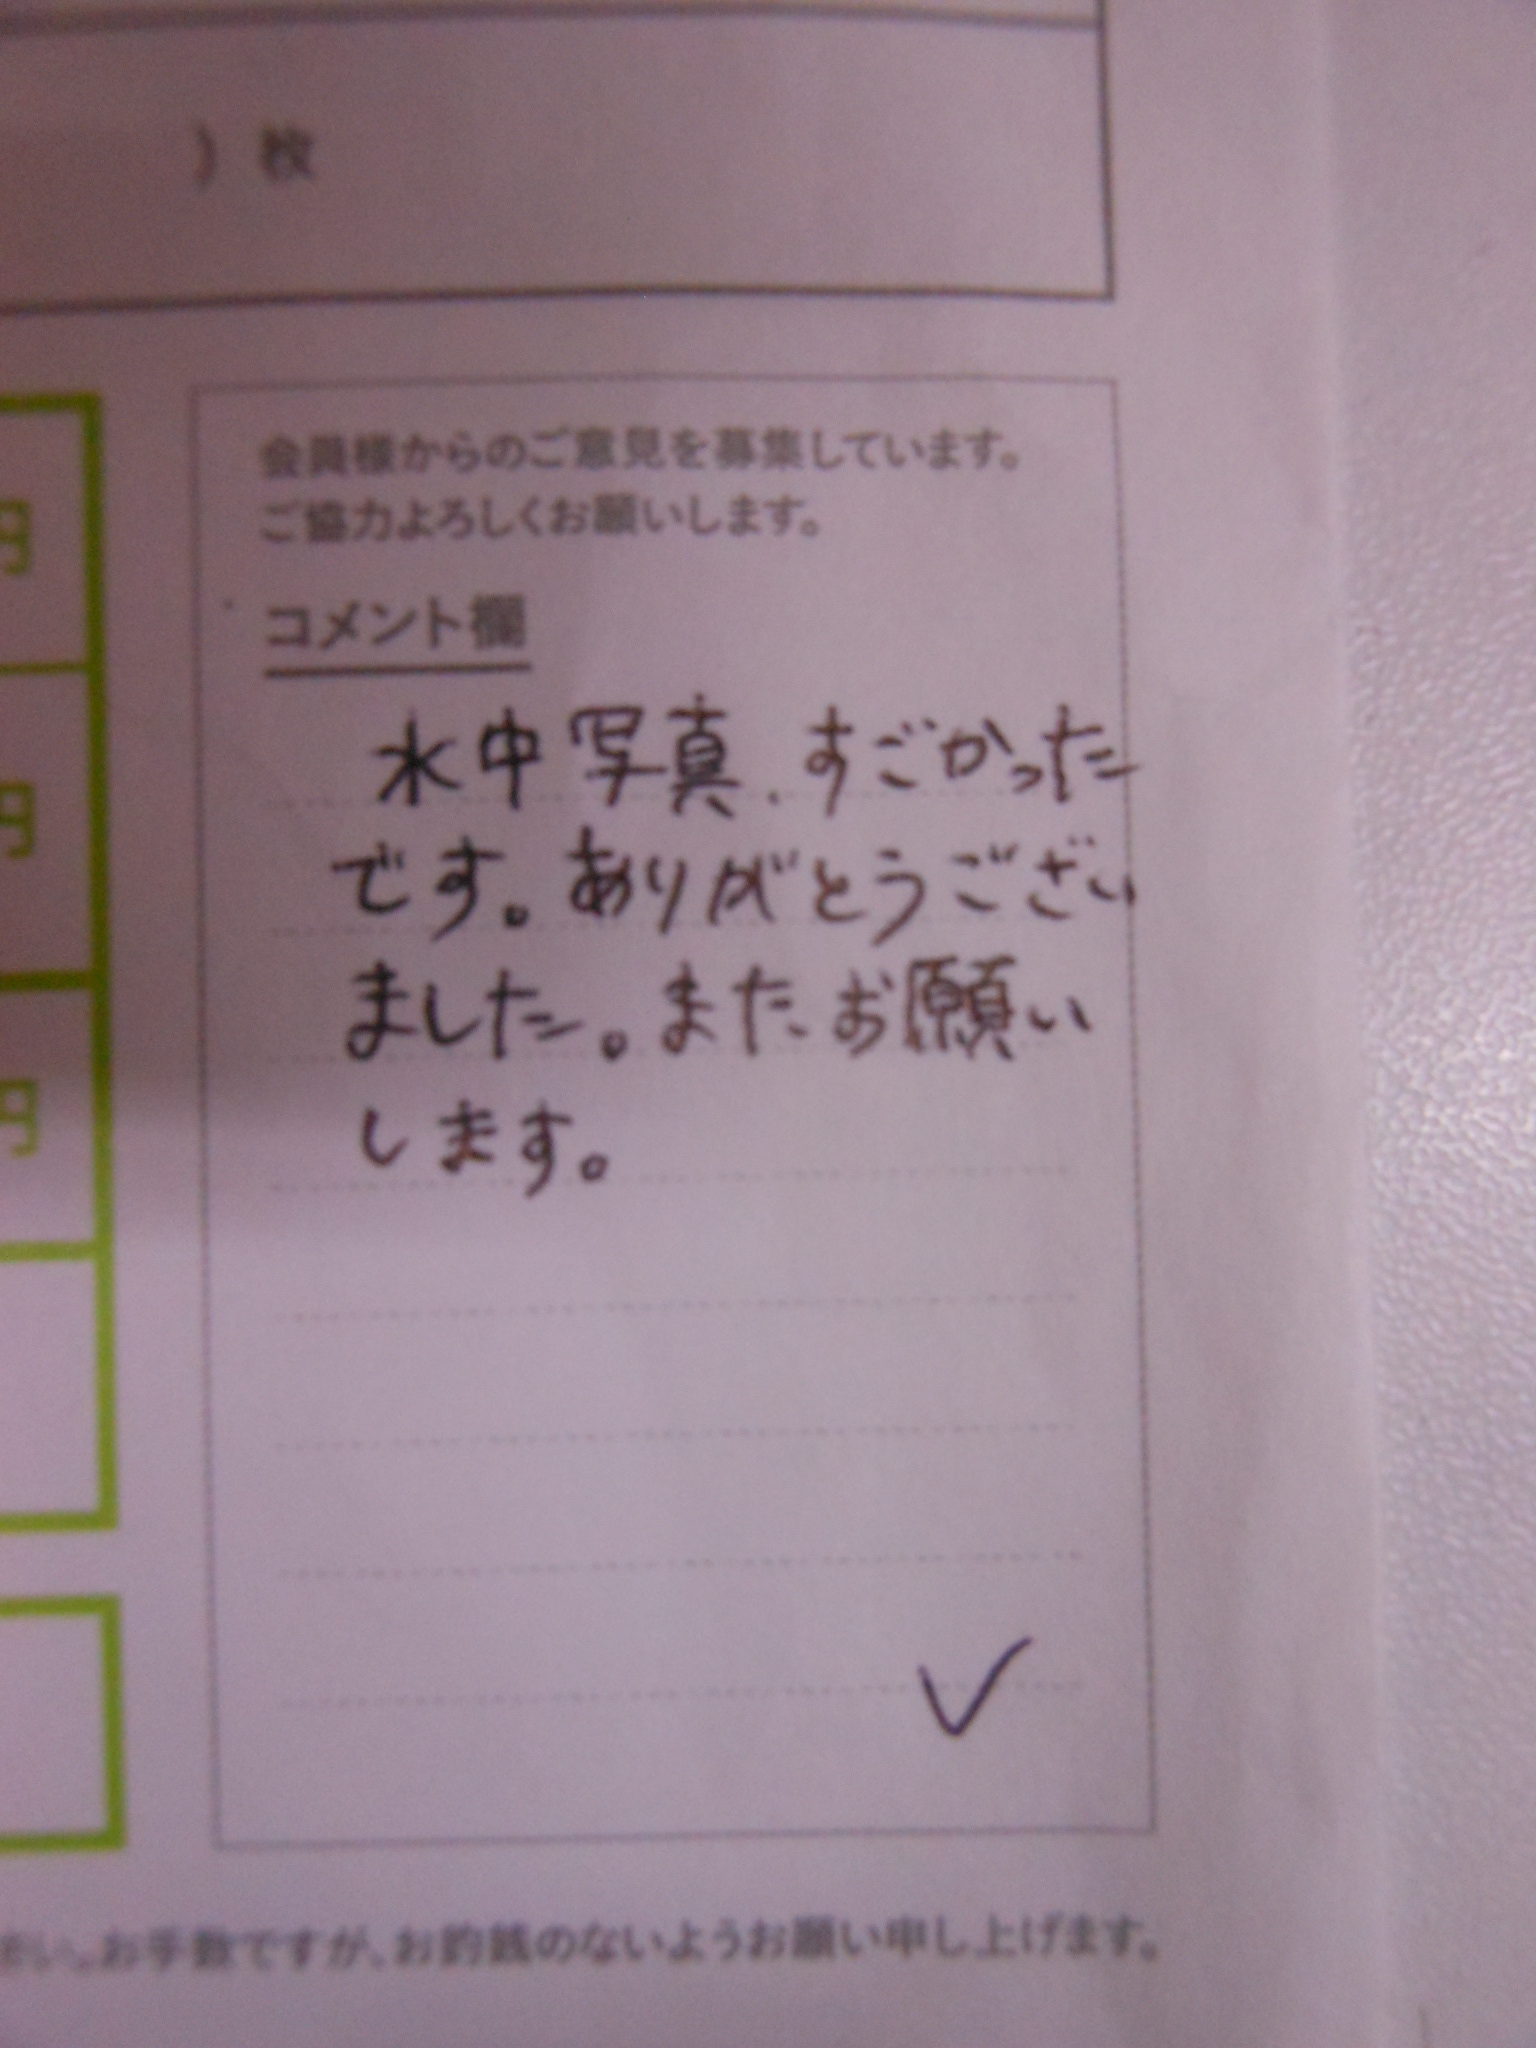 ）枚
会員様からのご意見を募集しています。
ご協力よろしくお願いします。
コメント欄
水中写真、すごかった
です。ありがとうござい
ました。またお願い
します。
円
円
円
お手数ですが、お釣銭のないようお願い申し上げます。